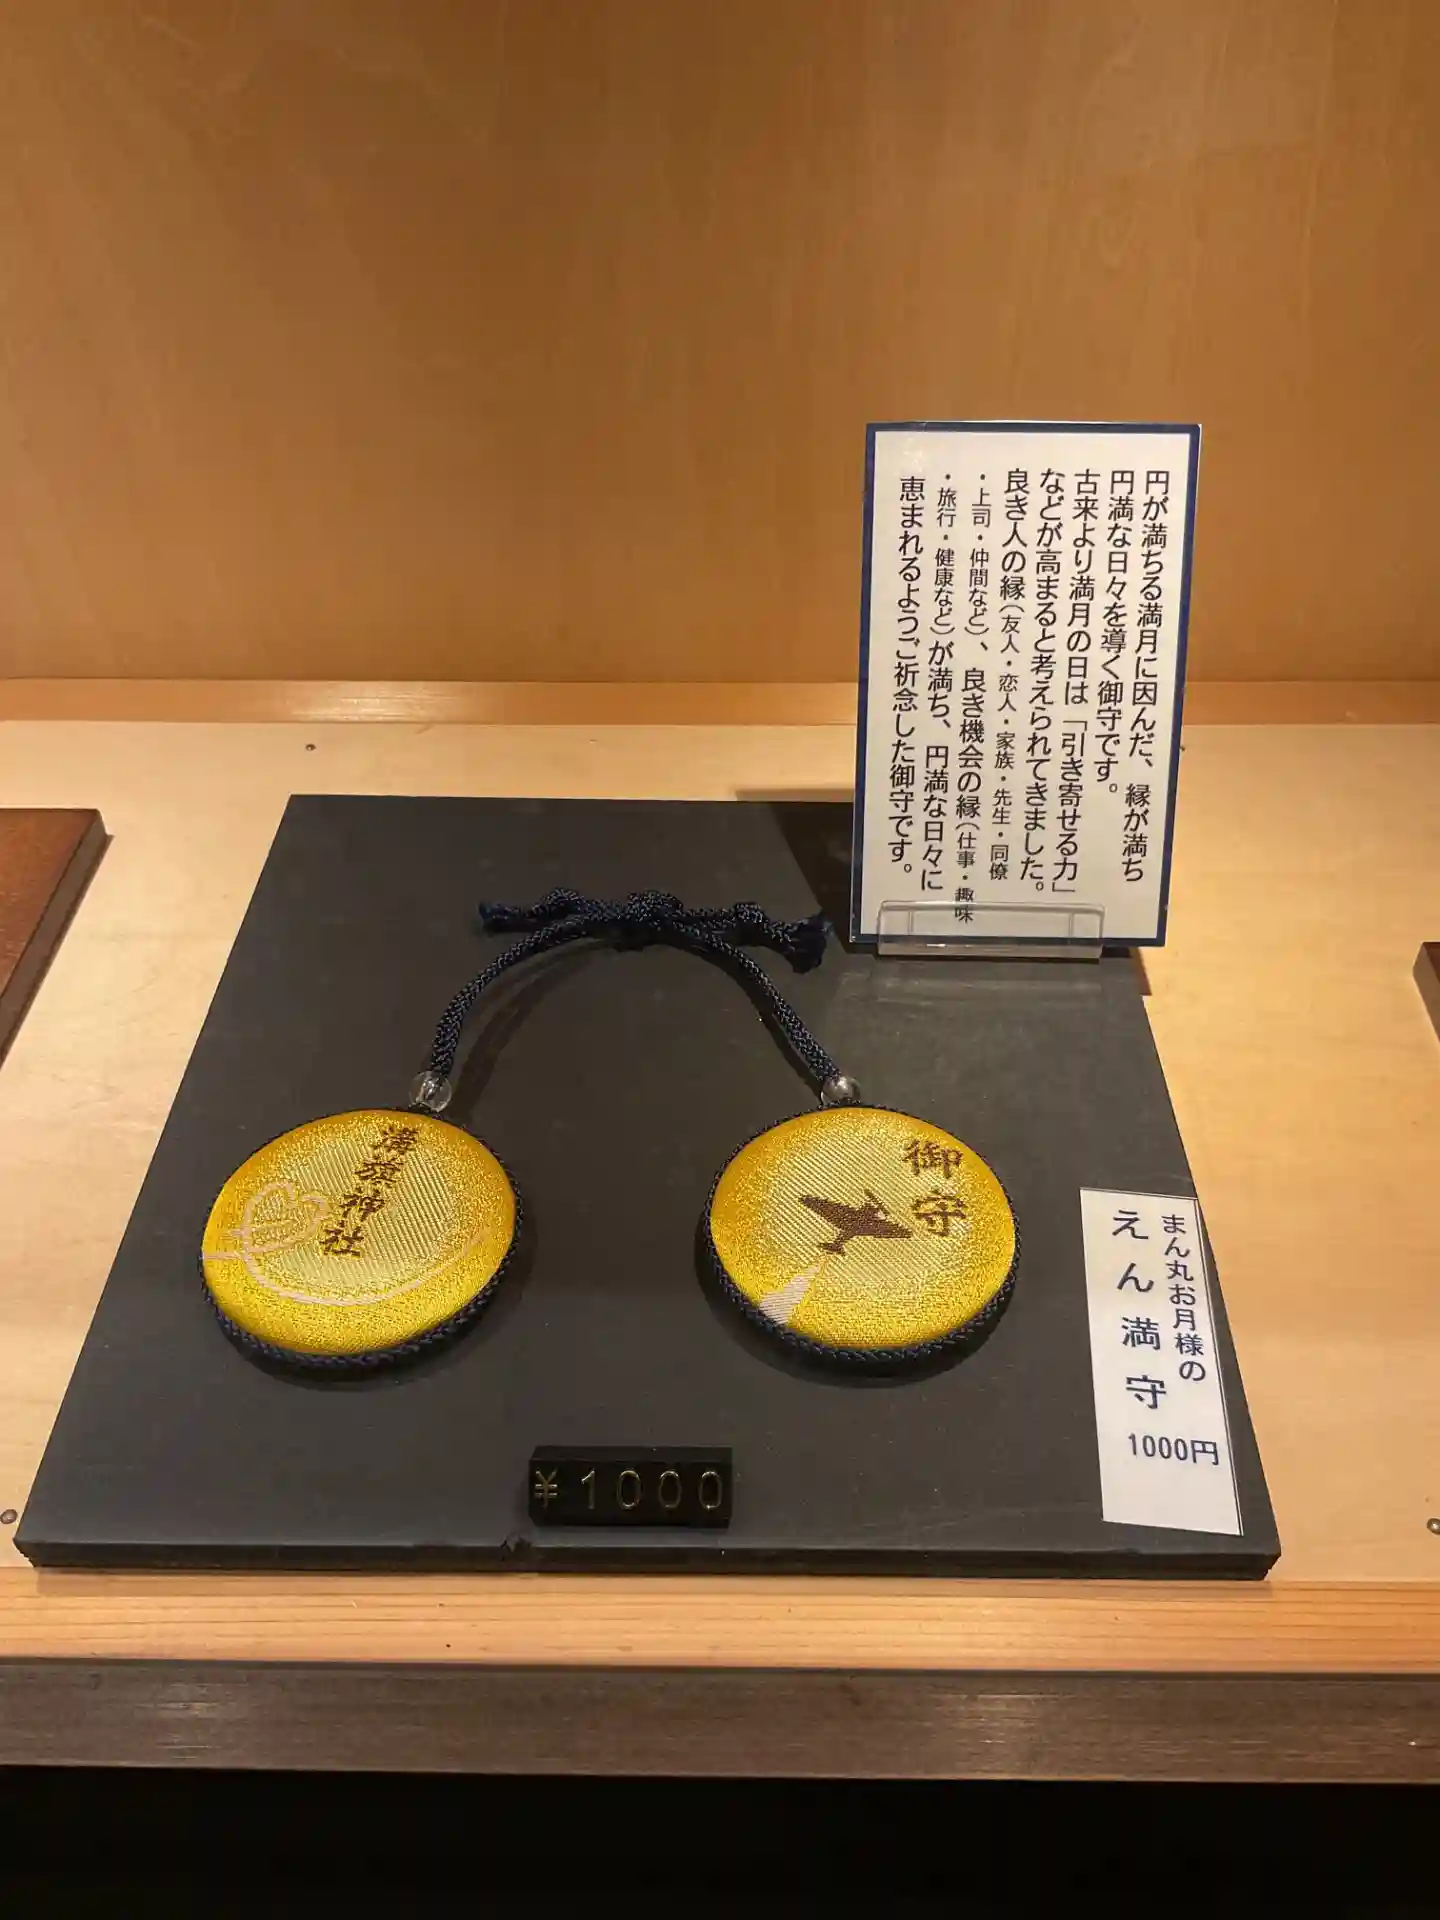 円が満ちる満月に因んだ、縁が満ち
円満な日々を導く御守です。
古来より満月の日は「引き寄せる力」
などが高まると考えられてきました。
良き人の縁（友人・恋人・家族・先生・同僚
・上司・仲間など）、良き機会の縁（仕事・趣味
・旅行・健康など）が満ち、円満な日々に
恵まれるようご祈念した御守です。
御守
神社
まん丸お月様の
えん満守
1000円
¥1000